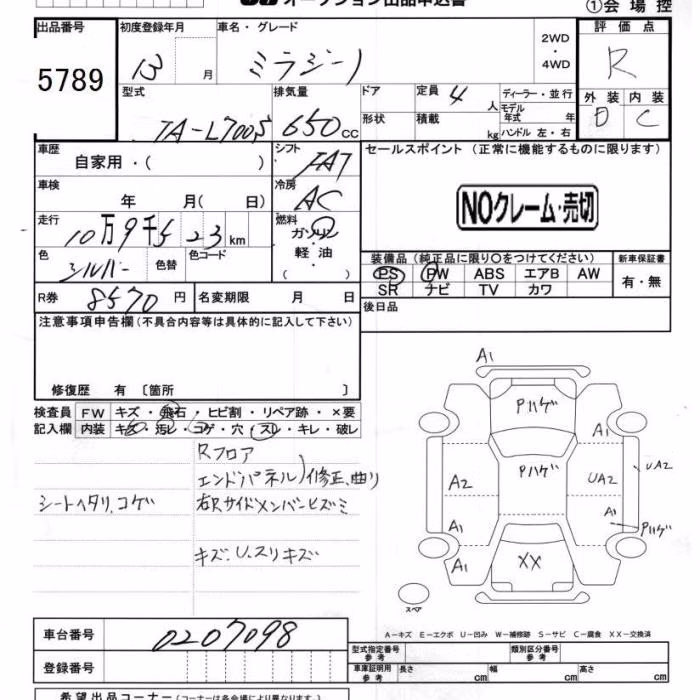 オークション出品申込書
①会場控
出品番号 初度登録年月 車名・グレード 2WD・4WD 評価点
5789 13 月 ミラジーノ R
型式 排気量 ドア 定員 4 人 ディーラー・並行 外装 内装
TA-L700S 650 cc 形状 積載 kg モデル年式 年 D C
ハンドル 左・右
車歴 自家用・( ) シフト FAT セールスポイント (正常に機能するものに限ります)
車検 年 月( 日) 冷房 AC NOクレーム・売切
走行 10万9千523km 燃料 ガソリン・軽油・( )
色 シルバー 色替 色コード 装備品(純正品に限り○をつけてください) 新車保証書
PS PW ABS エアB AW 有・無
SR ナビ TV カワ
R券 8570 円 名変期限 月 日 後日品
注意事項申告欄(不具合内容等は具体的に記入して下さい)
修復歴 有 〔箇所 〕
検査員 FW キズ・飛石・ヒビ割・リペア跡・×要
記入欄 内装 キズ・汚レ・コゲ・穴・スレ・キレ・破レ
Rフロア
エンドパネル)修正、曲リ
シートヘタリ、コゲ 右Rサイドメンバーヒズミ
キズ、U、スリキズ
A1
Pハゲ
A1
Pハゲ
A2 UA2 UA2
A1 A1 Pハゲ
A1 XX A1
スペア
A-キズ E-エクボ U-凹み W-補修跡 S-サビ C-腐食 XX-交換済
車台番号 0207098
型式指定番号 参考 類別区分番号 参考
登録番号 車庫証明用 参考 長さ cm 幅 cm 高さ cm
希望出品コーナー(コーナーは各会場により異なります。)